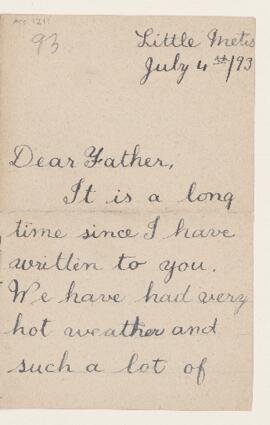 Acc. 1211
93
Little Metis
July 4st/93
Dear Father,
It is a long
time since I have
written to you.
We have had very
hot weather and
such a lot of